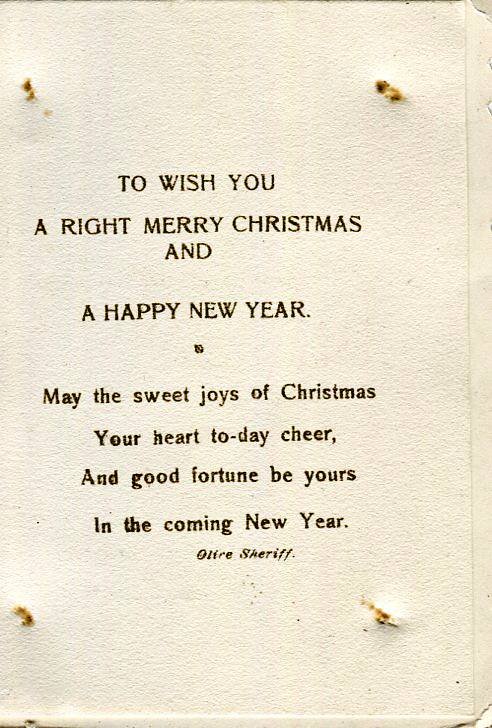 TO WISH YOU
A RIGHT MERRY CHRISTMAS
AND
A HAPPY NEW YEAR.
May the sweet joys of Christmas
Your heart to-day cheer,
And good fortune be yours
In the coming New Year.
Olive Sheriff.